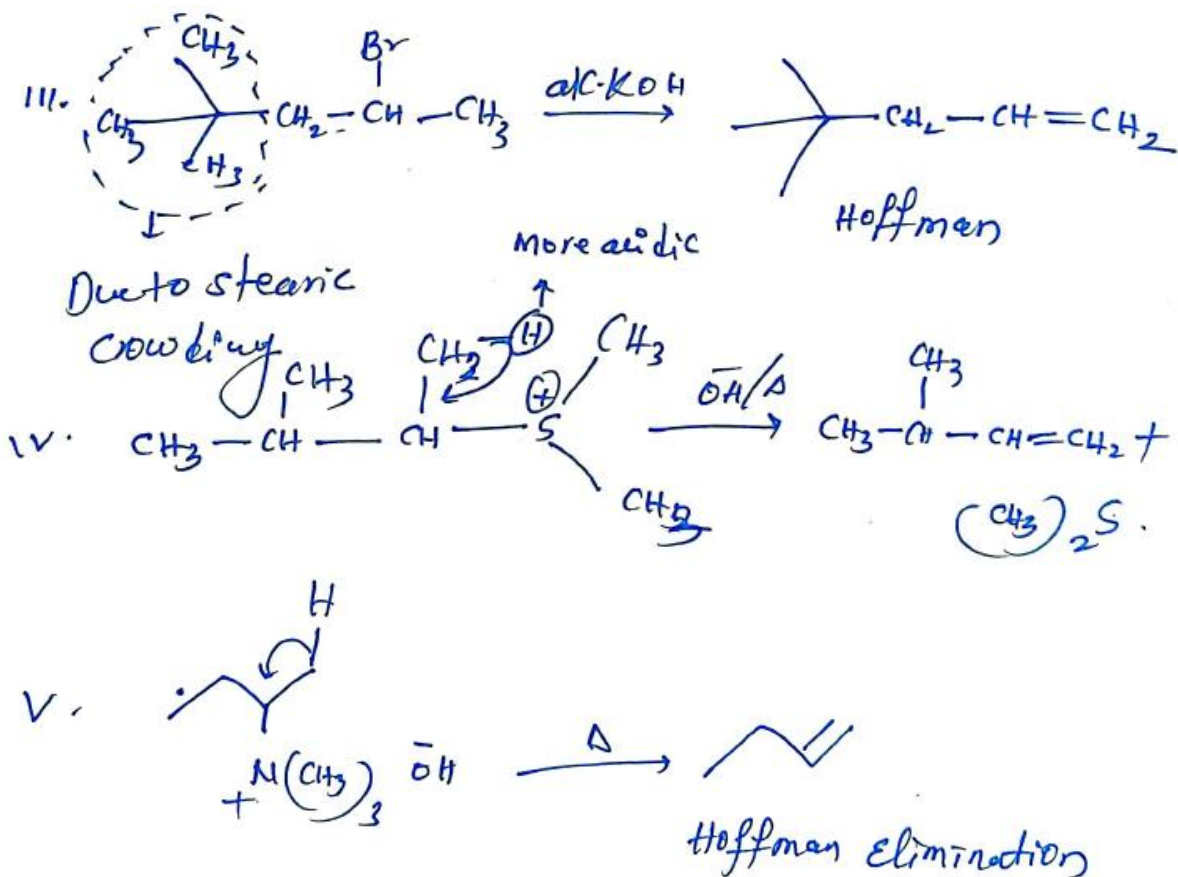 III. CH3 CH3 CH3 CH2 - CH - CH3 Br alc. KOH CH2 - CH = CH2
Hoffman
Due to stearic
crowding
More acidic
IV. CH3 - CH - CH - S CH3 CH2 - H + CH3 CH3 ŌH/Δ CH3 - CH - CH = CH2 + CH3
(CH3)2 S.
V. H + N(CH3)3 ŌH Δ
Hoffman Elimination